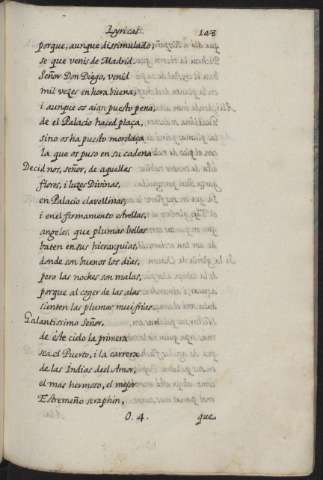 Lyricas. 148
porque, aunque dissimulado,
se que venis de Madrid.
Señor Don Diego, venid
mil vezes en hora buena,
i aunque os aian puesto pena,
de el Palacio haced plaça,
sino os ha puesto mordaça
la que os puso en su cadena
Decidnos, señor, de aquellas
flores, i luzes Divinas,
en Palacio clavellinas,
i en el firmamento estrellas,
angeles, que plumas bellas
baten en sus hierarquias,
donde son buenos los dias,
pero las noches son malas,
porque al coger de las alas
sienten las plumas mui frias.
Galantissimo Señor,
de este cielo la primera
sea el Puerto, i la carrera
de las Indias de el Amor,
el mas hermoso, el mejor
Estremeño seraphin,
O. 4. que